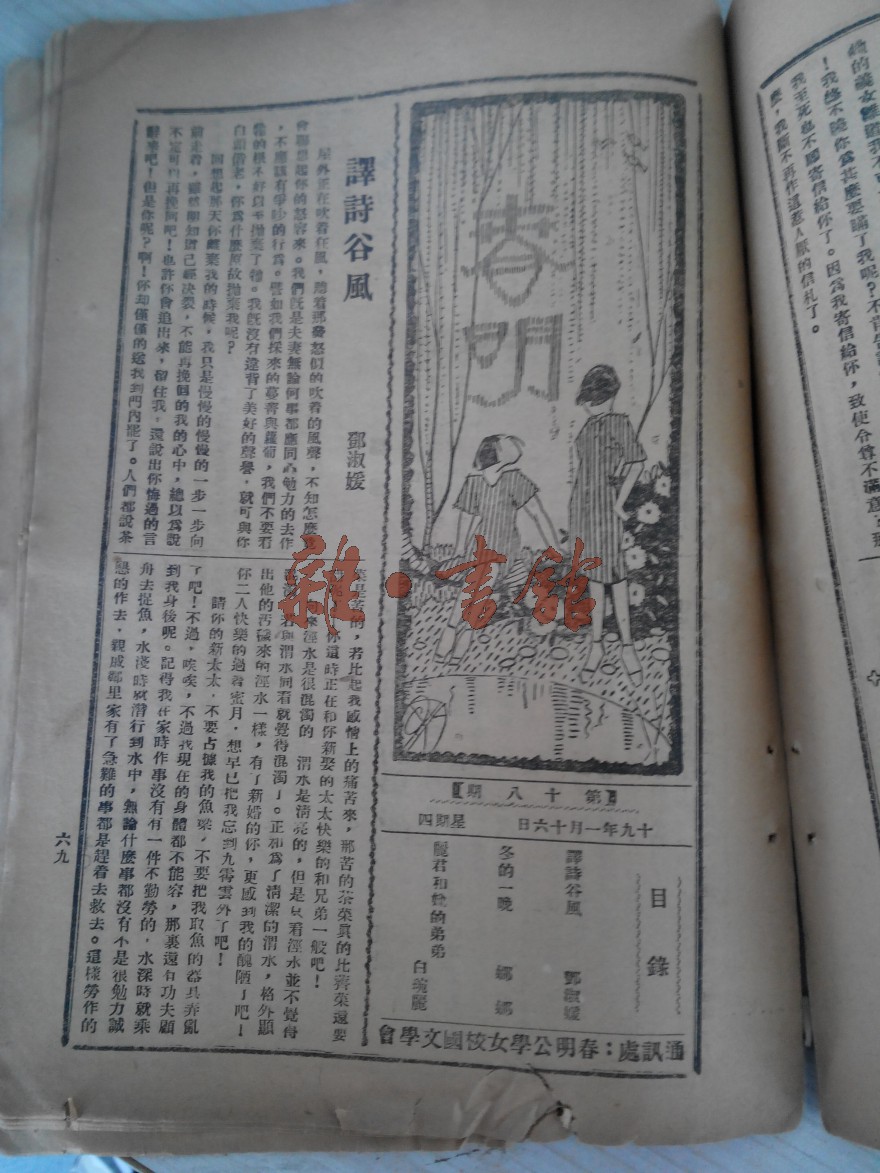 的信女難道我不可
！我終不曉你為甚麼要講了我呢？不肯
我至死也不願寄信給你了。因為我寄信給你，致使令尊不滿意
我斷不再作這惹人厭的信札了。
春明
【第十八期】
十九年一月十六日 星期四
目錄
譯詩谷風 鄧淑媛
冬的一晚 嫏嫏
麗君和她的弟弟 白琬麗
通訊處：春明公學女校國文學會
譯詩谷風
鄧淑媛
屋外正在吹着狂風，聽着那發怒價的吹着的風聲，不知怎麼
會聯想起你的怒容來。我們既是夫妻無論何事都應同心勉力的去作
，不應該有爭吵的行為。譬如我們採來的蔓菁與蘿蔔，我們不要看
的根不好以至拋棄了牠。我既沒有違背了美好的聲譽，就可與你
白頭偕老，你為什麼原故拋棄我呢？
回想起那天你離棄我的時候，我只是慢慢的慢慢的一步一步向
前走着，雖然明知道已經决裂，不能再挽回的我的心中，總以為說
不定可以再挽回吧！也許你會追出來，留住我，還說出你悔過的言
辭來吧！但是你呢？啊！你却僅僅的送我到門內罷了。人們都說茶
葉是苦的，若比起我感情上的痛苦來，那苦的茶葉真的比薺菜還要
你這時正在和你新娶的太太快樂的和兄弟一般吧！
來涇水是很混濁的 渭水是清亮的，但是只看涇水並不覺得
混濁，若與渭水同看就覺得混濁了。正和為了清潔的渭水，格外顯
出他的汚穢來的涇水一樣，有了新婚的你，更感到我的醜陋了吧！
你二人快樂的過着蜜月，想早已把我忘到九霄雲外了吧！
請你的新太太，不要占據我的魚梁，不要把我取魚的器具弄亂
了吧！不過，唉唉，不過我現在的身體都不能容，那裏還有功夫顧
到我身後呢。記得我在家時作事沒有有一件不勤勞的，水深時就乘
舟去捉魚，水淺時就潛行到水中，無論什麼事都沒有不是很勉力誠
懇的作去，親戚鄰里家有了急難的事都是趕着去救去。這樣勞作的
六九
雜·書館